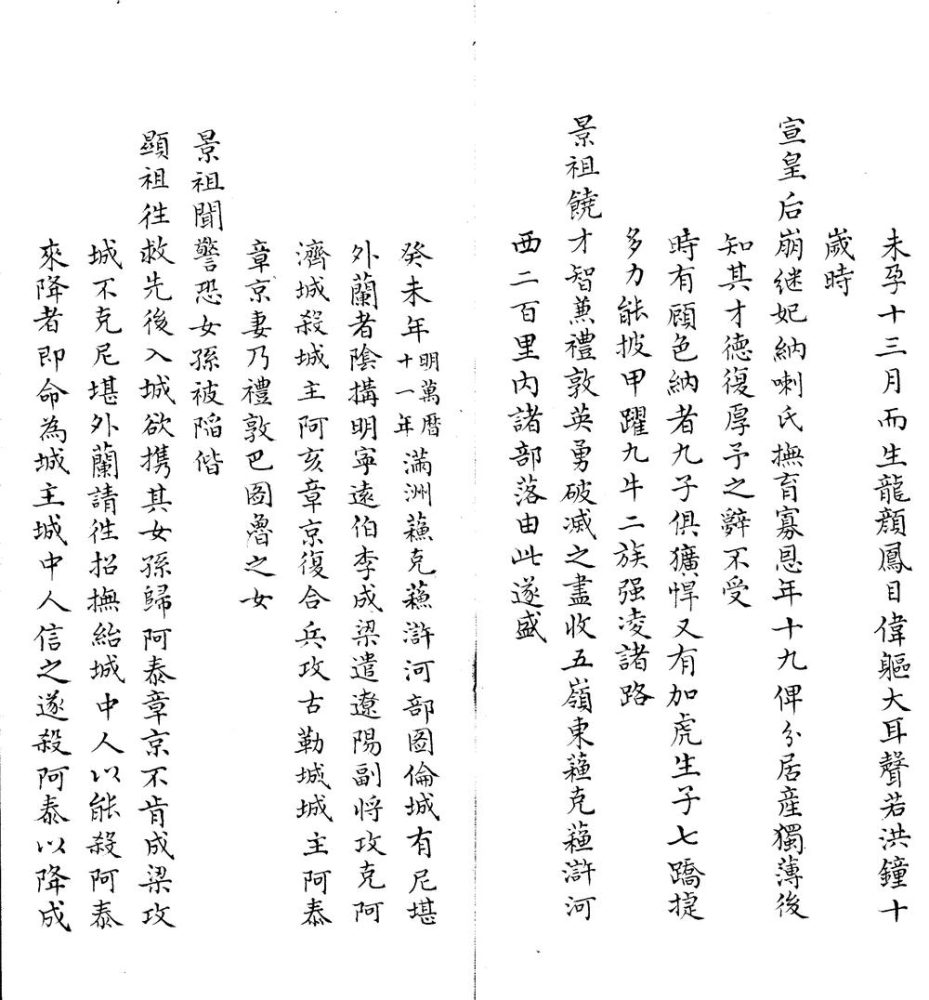 未孕十三月而生龍顏鳳目偉軀大耳聲若洪鐘十
歲時
宣皇后崩継妃納喇氏撫育寡恩年十九俾分居産獨薄後
知其才德復厚予之辭不受
時有碩色納者九子俱獷悍又有加虎生子七蹻捷
多力能披甲躍九牛二族强凌諸路
景祖饒才智兼禮敦英勇破滅之盡收五嶺東蘓克蘓滸河
西二百里内諸部落由此遂盛
癸未年明萬曆十一年滿洲蘓克蘓滸河部圖倫城有尼堪
外蘭者陰搆明寧遠伯李成梁遣遼陽副将攻克阿
濟城殺城主阿亥章京復合兵攻古勒城城主阿泰
章京妻乃禮敦巴圖魯之女
景祖聞警恐女孫被陷偕
顯祖徃救先後入城欲携其女孫歸阿泰章京不肯成梁攻
城不克尼堪外蘭請徃招撫紿城中人以能殺阿泰
來降者即命為城主城中人信之遂殺阿泰以降成